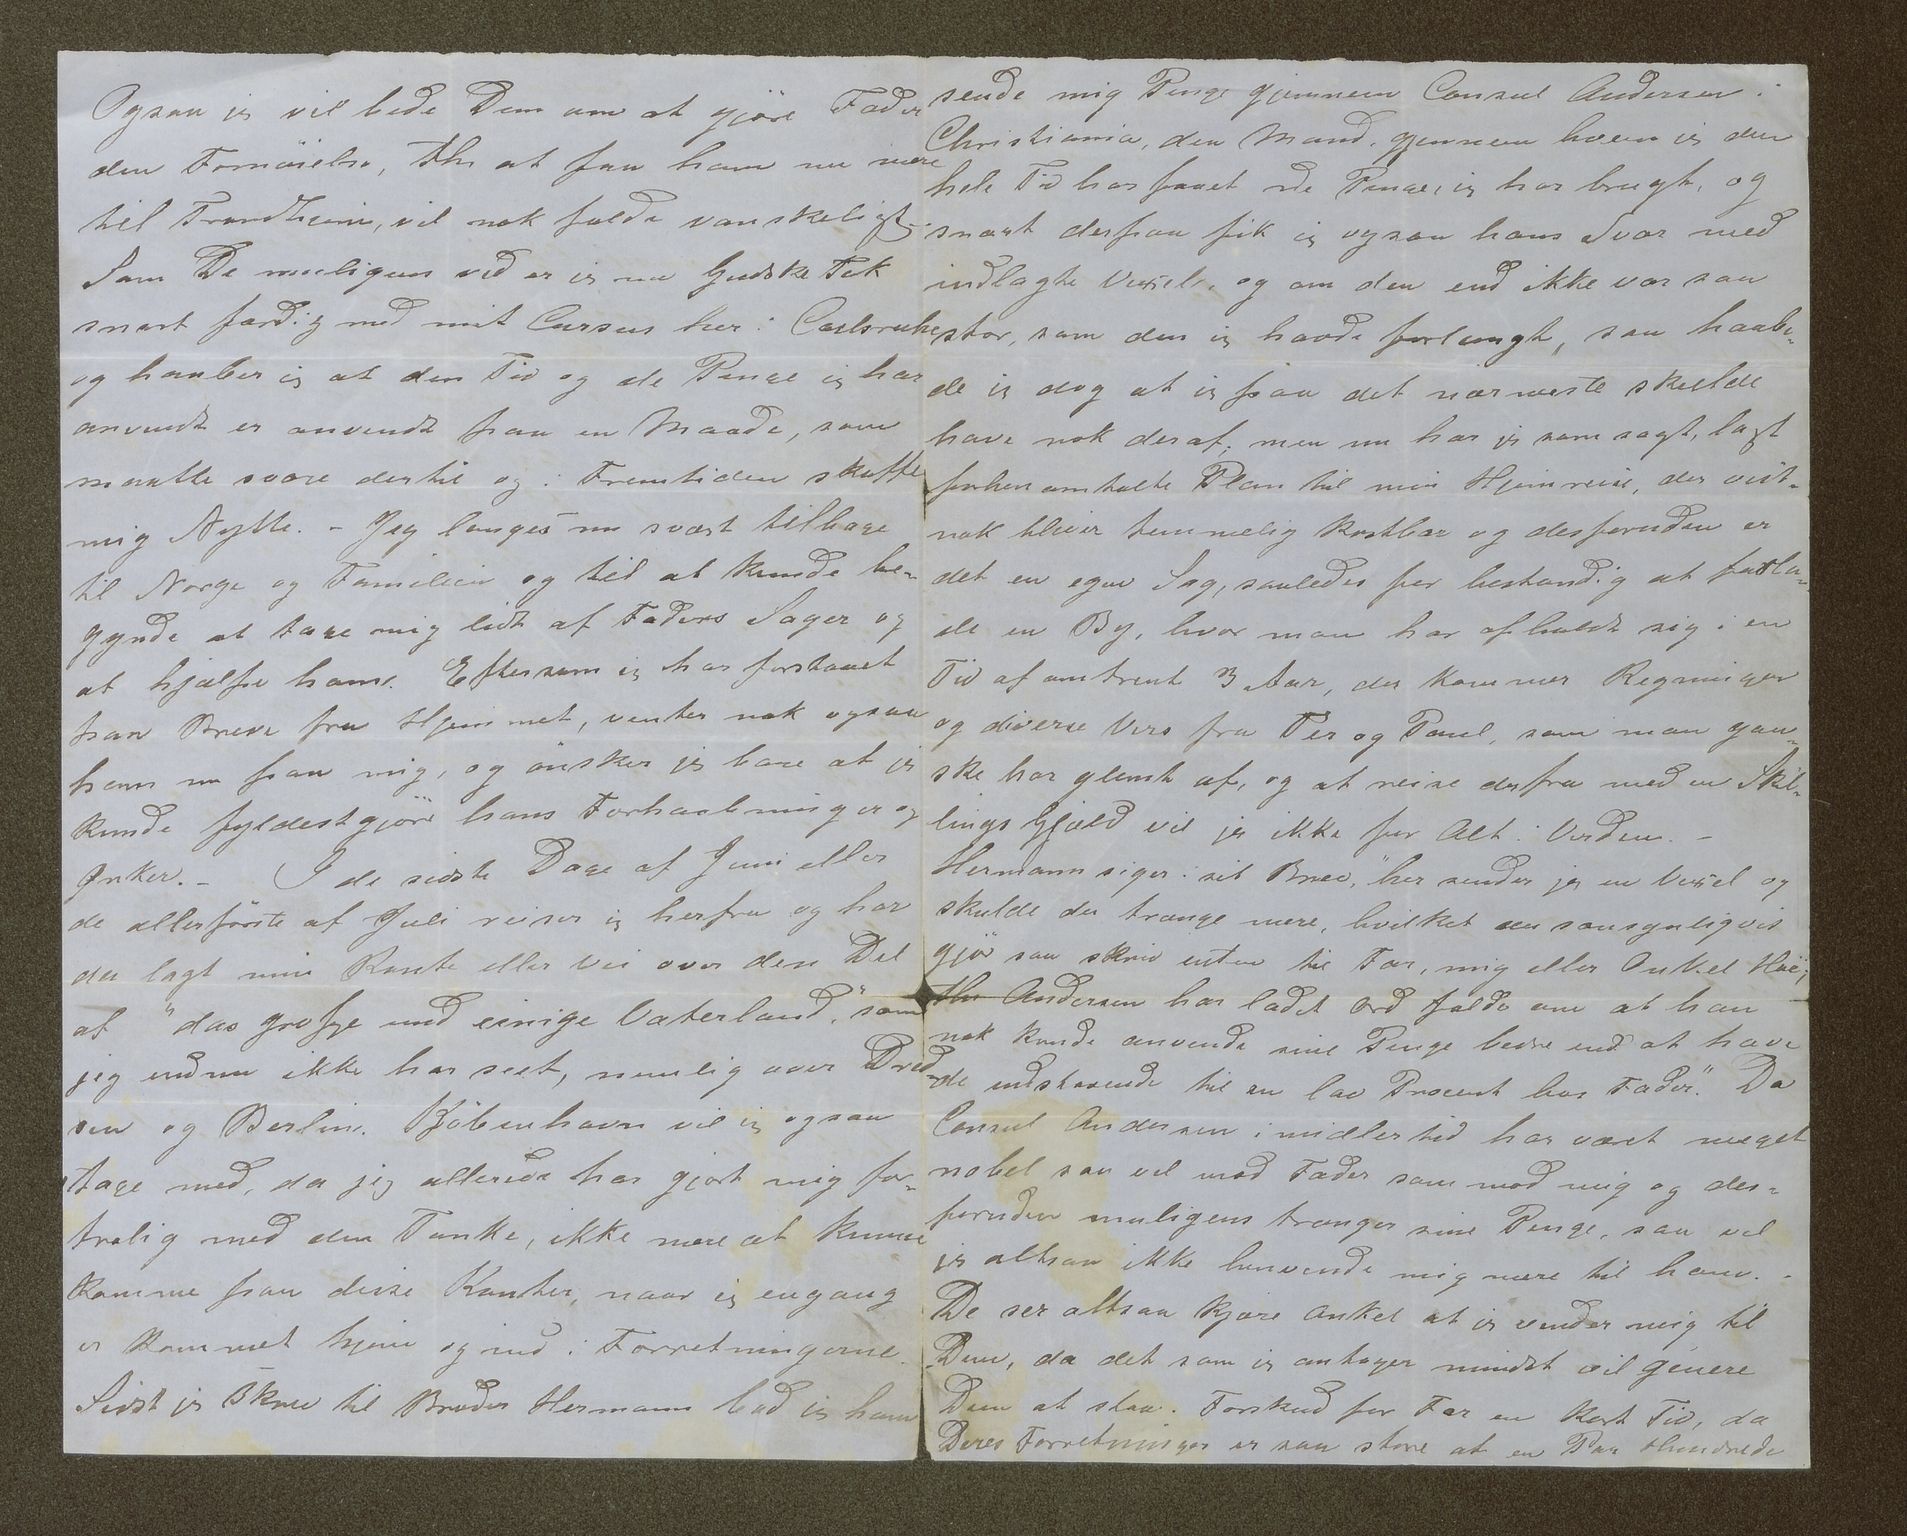 Ogsaa jeg vil bede Dem om at gjöre Fader
den Fornöielse, thi at faa ham nu mere
til Trondhjem, vil nok falde vanskeligt.
Som De muligens ved er jeg nu Gudske Tak
snart færdig med mit Cursus her i Carlsruhe
og haaber jeg at den Tid og de Penge jeg har
anvendt er anvendt paa en Maade, som
maatte svare dertil og i Fremtiden skaffe
mig Nytte. - Jeg længes nu svært tilbage
til Norge og Familien og til at kunde be-
gynde at tage mig lidt af Faders Sager og
at hjælpe ham. Eftersom jeg har forstaaet
paa Breve fra Hjemmet, venter nok ogsaa
han nu paa mig, og önsker jeg bare at jeg
kunde fyldestgjöre hans Forhaabninger og
Önsker. - I de sidste Dage af Juni eller
de allerförste af Juli reiser jeg herfra og har
da lagt min Route eller Vei over den Del
af "das grosze und einige Vaterland," som
jeg endnu ikke har seet, nemlig over Dred-
sen og Berlin. Kjöbenhavn vil jeg ogsaa
tage med, da jeg allerede har gjort mig for-
trolig med den Tanke, ikke mere at kunne
komme paa disse Kanter, naar jeg engang
er kommet hjem og ind i Forretningerne.
Sidst jeg skrev til Broder Hermann bad jeg ham
sende mig Penge gjennem Consul Andersen i
Christiania, den Mand, gjennem hvem jeg den
hele Tid har faaet de Penge, jeg har brugt, og
snart derpaa fik jeg ogsaa hans Svar med
indlagte Vexel, og om den end ikke var saa
stor, som den jeg havde forlangt, saa haab-
de jeg dog at jeg paa det nærmeste skulde
have nok deraf; men nu har jeg som sagt, lagt
forhen omtalte Plan til min Hjemreise, der vist-
nok bliver temmelig kostbar og desforuden er
det en egen Sag, saaledes for bestandig at forla-
de en By, hvor man har opholdt sig i en
Tid af omtrent 3 Aar, der kommer Regninger
og diverse Vers fra Per og Paul, som man gan-
ske har glemt af, og at reise derfra med en Skil-
lings Gjæld vil jeg ikke for Alt i Verden. -
Hermann siger i sit Brev, "her sender jeg en Vexel og
skulde du trænge mere, hvilket du sansynligvis
gjör saa skriv enten til Far, mig eller Onkel Höe;
Andersen har ladet Ord falde om at han
nok kunde anvende sine Penge bedre end at have
de indstaaende til en lav Procent hos Fader". Da
Consul Andersen imidlertid har været meget
nobel saa vel mod Fader som mod mig og des-
foruden muligens trænger sine Penge, saa vil
jeg altsaa ikke henvende mig mere til ham. -
De ser altsaa kjære Onkel at jeg vender mig til
Dem, da det som jeg antager mindst vil genere
Dem at staa i Forskud for Far en kort Tid, da
Deres Forretninger er saa store at en Par Hundrede